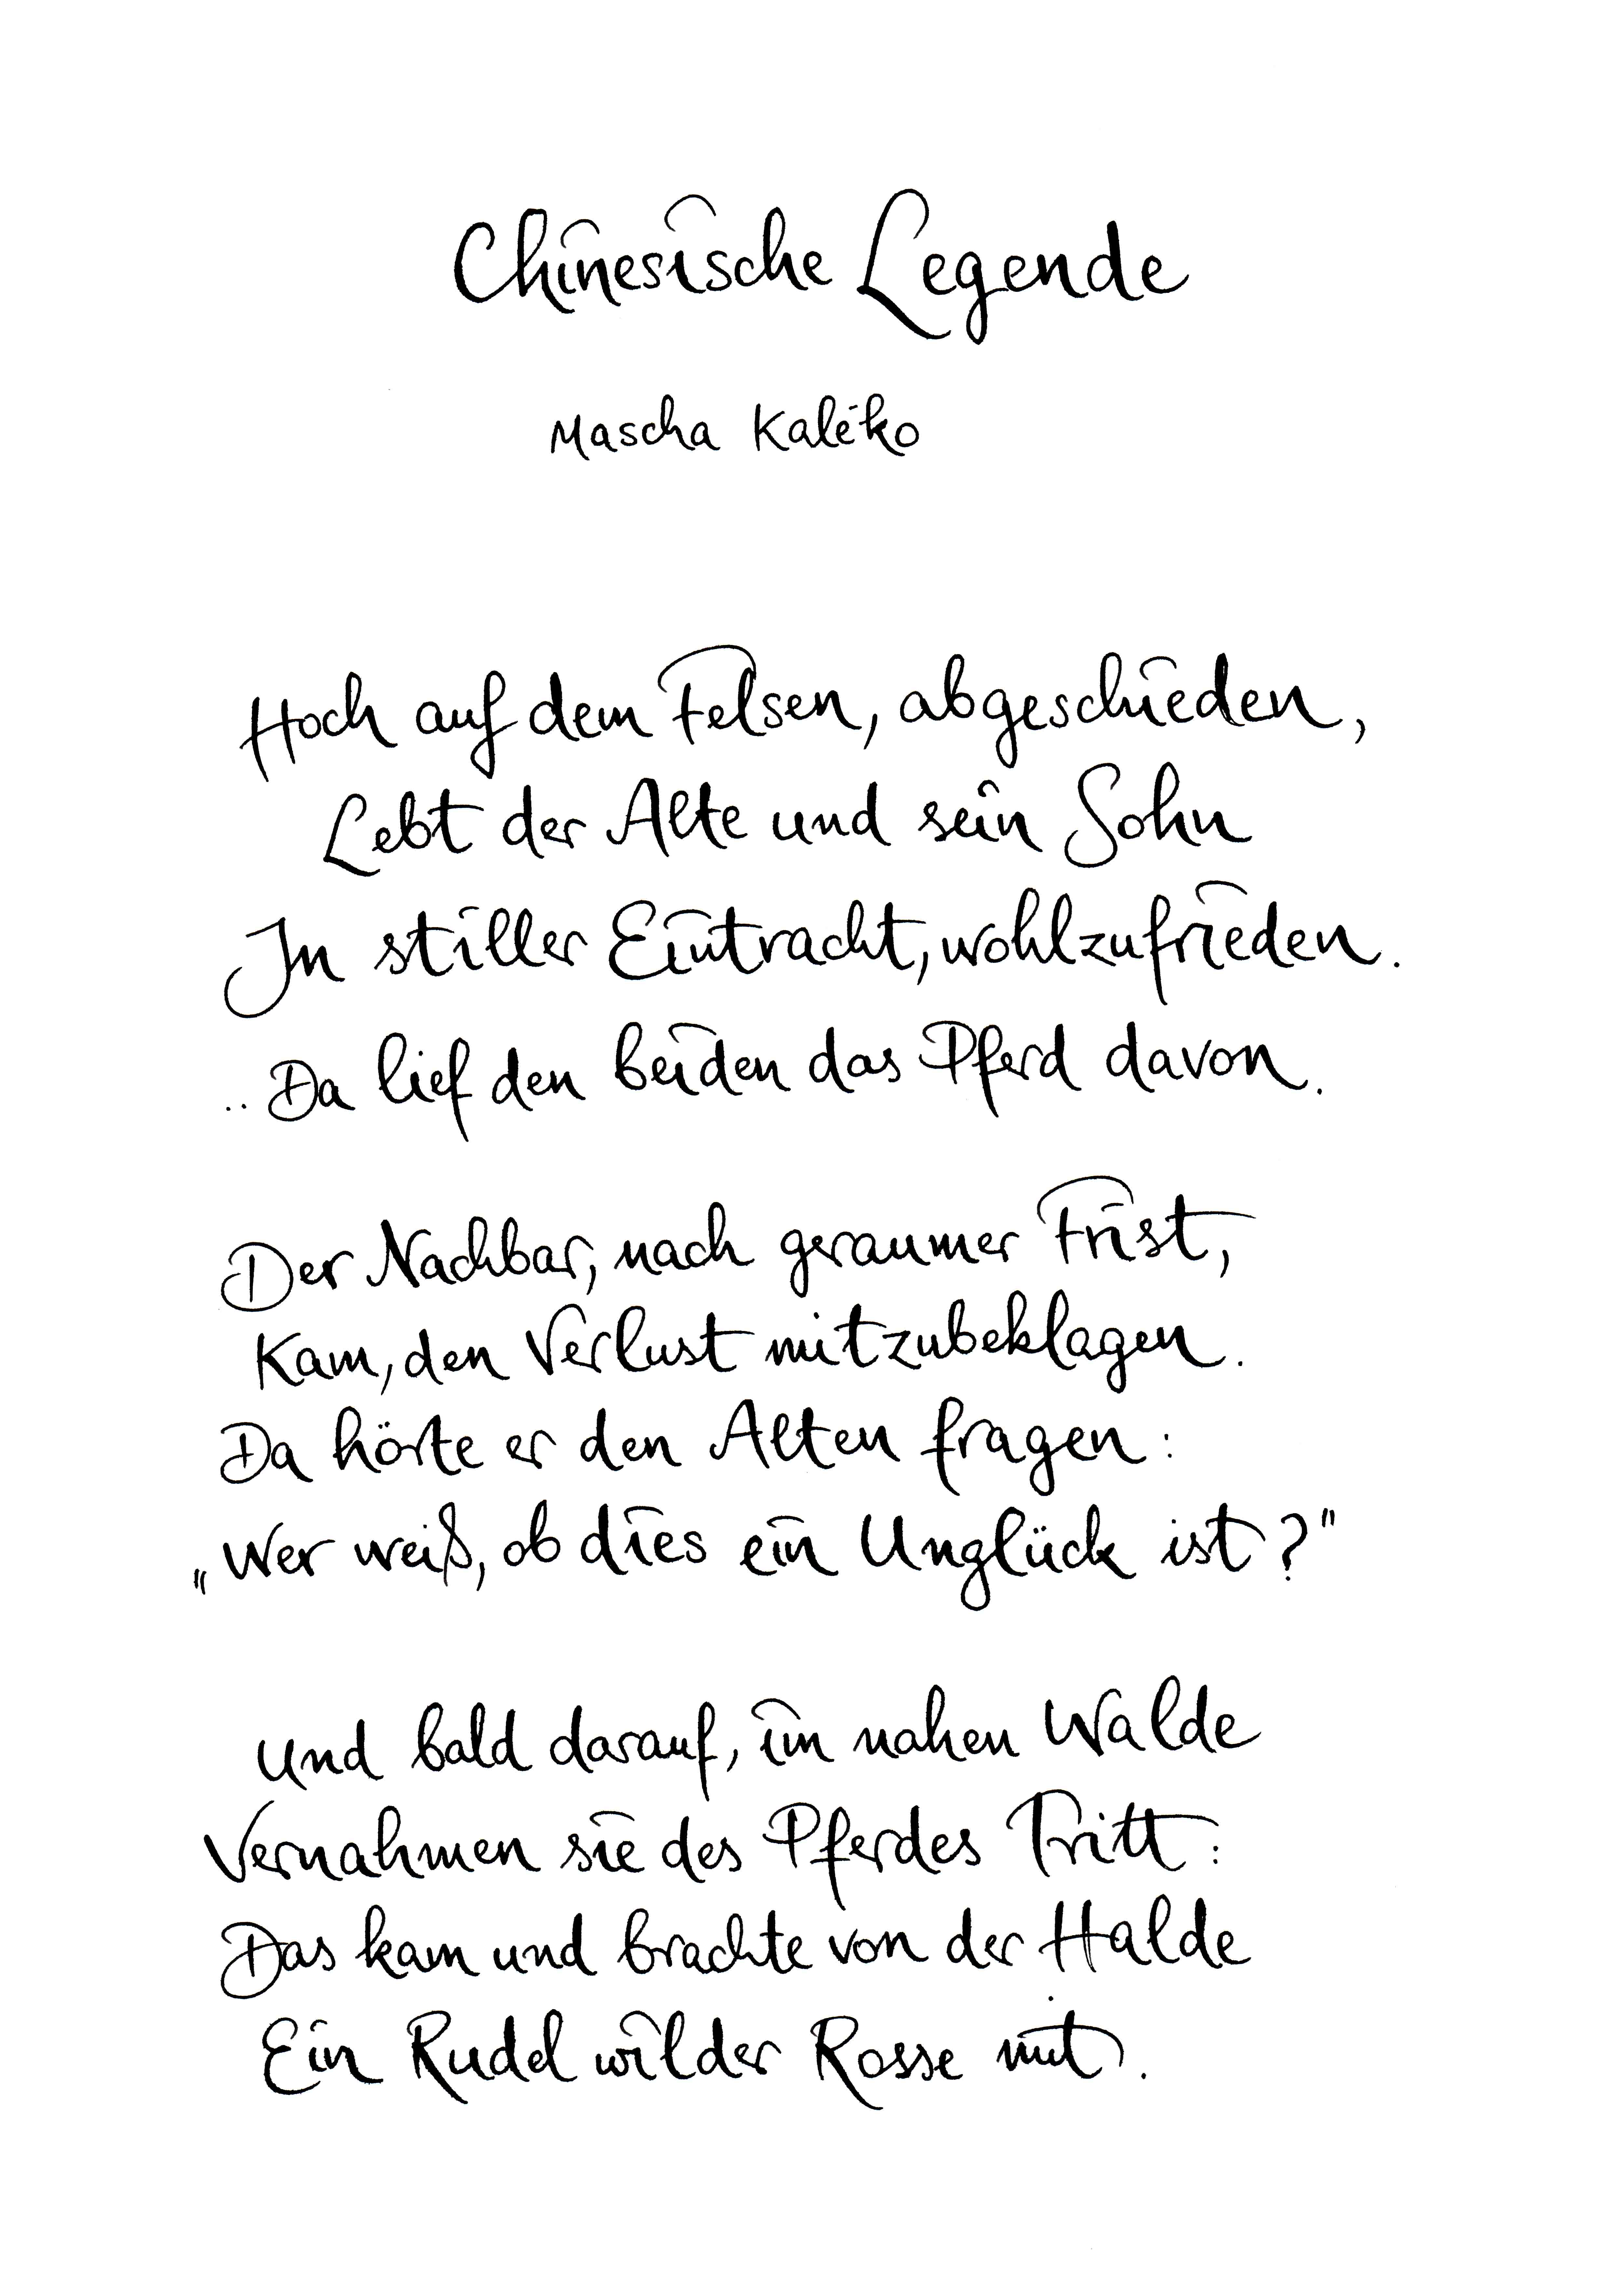 Chinesische Legende
Mascha Kaléko
Hoch auf dem Felsen, abgeschieden,
Lebt der Alte und sein Sohn
In stiller Eintracht, wohlzufrieden.
.. Da lief den beiden das Pferd davon.
Der Nachbar, nach geraumer Frist,
Kam, den Verlust mitzubeklagen.
Da hörte er den Alten fragen:
„Wer weiß, ob dies ein Unglück ist?"
Und bald darauf, im nahen Walde
Vernahmen sie des Pferdes Tritt:
Das kam und brachte von der Halde
Ein Rudel wilder Rosse mit.